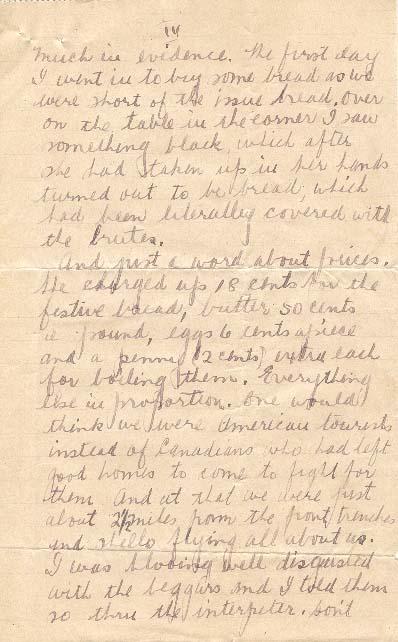 IV
much in evidence. The first day
I went in to buy some bread as we
were short of the issue bread. Over
on the table in the corner I saw
something black, which after
she had taken up in her hands
turned out to be bread, which
had been literally covered with
the brutes.
And just a word about prices.
He charged us 18 cents for the
festive bread, butter 50 cents
a pound, eggs 6 cents apiece
and a penny (2 cents) extra each
for boiling them. Everything
else in proportion. One would
think we were American tourists
instead of Canadians who had left
good homes to come to fight for
them. And at that we were just
about 2½ miles from the front trenches
and shells flying all about us.
I was blooming well disgusted
with the beggars and I told them
so thru the interpeter. Don't